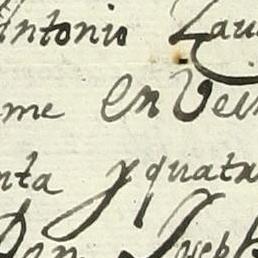 Antonio Lau
me En Vei
nta y quatr
Don Joseph